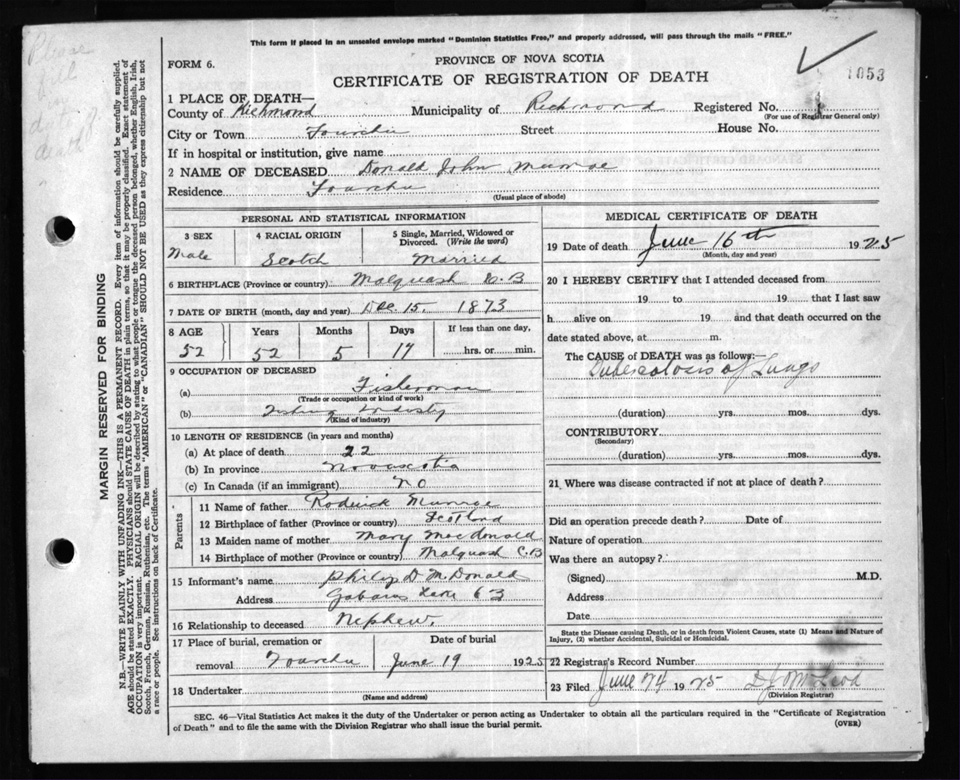 This form if placed in an unsealed envelope marked "Dominion Statistics Free," and properly addressed, will pass through the mails "FREE."
FORM 6.
PROVINCE OF NOVA SCOTIA
CERTIFICATE OF REGISTRATION OF DEATH
1053
Please fill in date of death
MARGIN RESERVED FOR BINDING
N.B.—WRITE PLAINLY WITH UNFADING INK—THIS IS A PERMANENT RECORD. Every item of information should be carefully supplied.
AGE should be stated EXACTLY. PHYSICIANS should STATE CAUSE OF DEATH in plain terms, so that it may be properly classified. Exact statement of
OCCUPATION is very important. RACIAL ORIGIN will be described by stating to what people or tongue the deceased person belonged, whether English, Irish,
Scotch, French, German, Russian, Ruthenian, etc. The terms "AMERICAN" or "CANADIAN" SHOULD NOT BE USED as they express citizenship but not
a race or people. See instructions on back of Certificate.
1 PLACE OF DEATH—
County of Richmond Municipality of Richmond Registered No.
(For use of Registrar General only)
City or Town Fourchu Street House No.
If in hospital or institution, give name
2 NAME OF DECEASED Donald John Munroe
Residence Fourchu
(Usual place of abode)
PERSONAL AND STATISTICAL INFORMATION
3 SEX 4 RACIAL ORIGIN 5 Single, Married, Widowed or Divorced. (Write the word)
Male Scotch Married
6 BIRTHPLACE (Province or country) Malquash C.B
7 DATE OF BIRTH (month, day and year) Dec. 15, 1873
8 AGE Years Months Days If less than one day,
52 52 5 17 hrs. or min.
9 OCCUPATION OF DECEASED
(a) Fisherman
(Trade or occupation or kind of work)
(b) Fishing Industy
(Kind of industry)
10 LENGTH OF RESIDENCE (in years and months)
(a) At place of death 22
(b) In province Novascotia
(c) In Canada (if an immigrant) NO
Parents
11 Name of father Roderick Munroe
12 Birthplace of father (Province or country) Scotland
13 Maiden name of mother Mary MacDonald
14 Birthplace of mother (Province or country) Malquash C.B
15 Informant's name Philip D McDonald
Address Gabarus Lake C B
16 Relationship to deceased Nephew.
17 Place of burial, cremation or removal Fourchu Date of burial June 19 1925
18 Undertaker
(Name and address)
MEDICAL CERTIFICATE OF DEATH
19 Date of death June 16th 1925
(Month, day and year)
20 I HEREBY CERTIFY that I attended deceased from
19 to 19 that I last saw
h alive on 19 and that death occurred on the
date stated above, at m.
The CAUSE of DEATH was as follows:—
Tuberculosis of Lungs
(duration) yrs. mos. dys.
CONTRIBUTORY
(Secondary)
(duration) yrs. mos. dys.
21 Where was disease contracted if not at place of death?
Did an operation precede death? Date of
Nature of operation
Was there an autopsy?
(Signed) M.D.
Address
Date
State the Disease causing Death, or in death from Violent Causes, state (1) Means and Nature of
Injury, (2) whether Accidental, Suicidal or Homicidal.
22 Registrar's Record Number
23 Filed June 24 1925 D J McLeod
(Division Registrar)
SEC. 46—Vital Statistics Act makes it the duty of the Undertaker or person acting as Undertaker to obtain all the particulars required in the "Certificate of Registration
of Death" and to file the same with the Division Registrar who shall issue the burial permit.
(OVER)